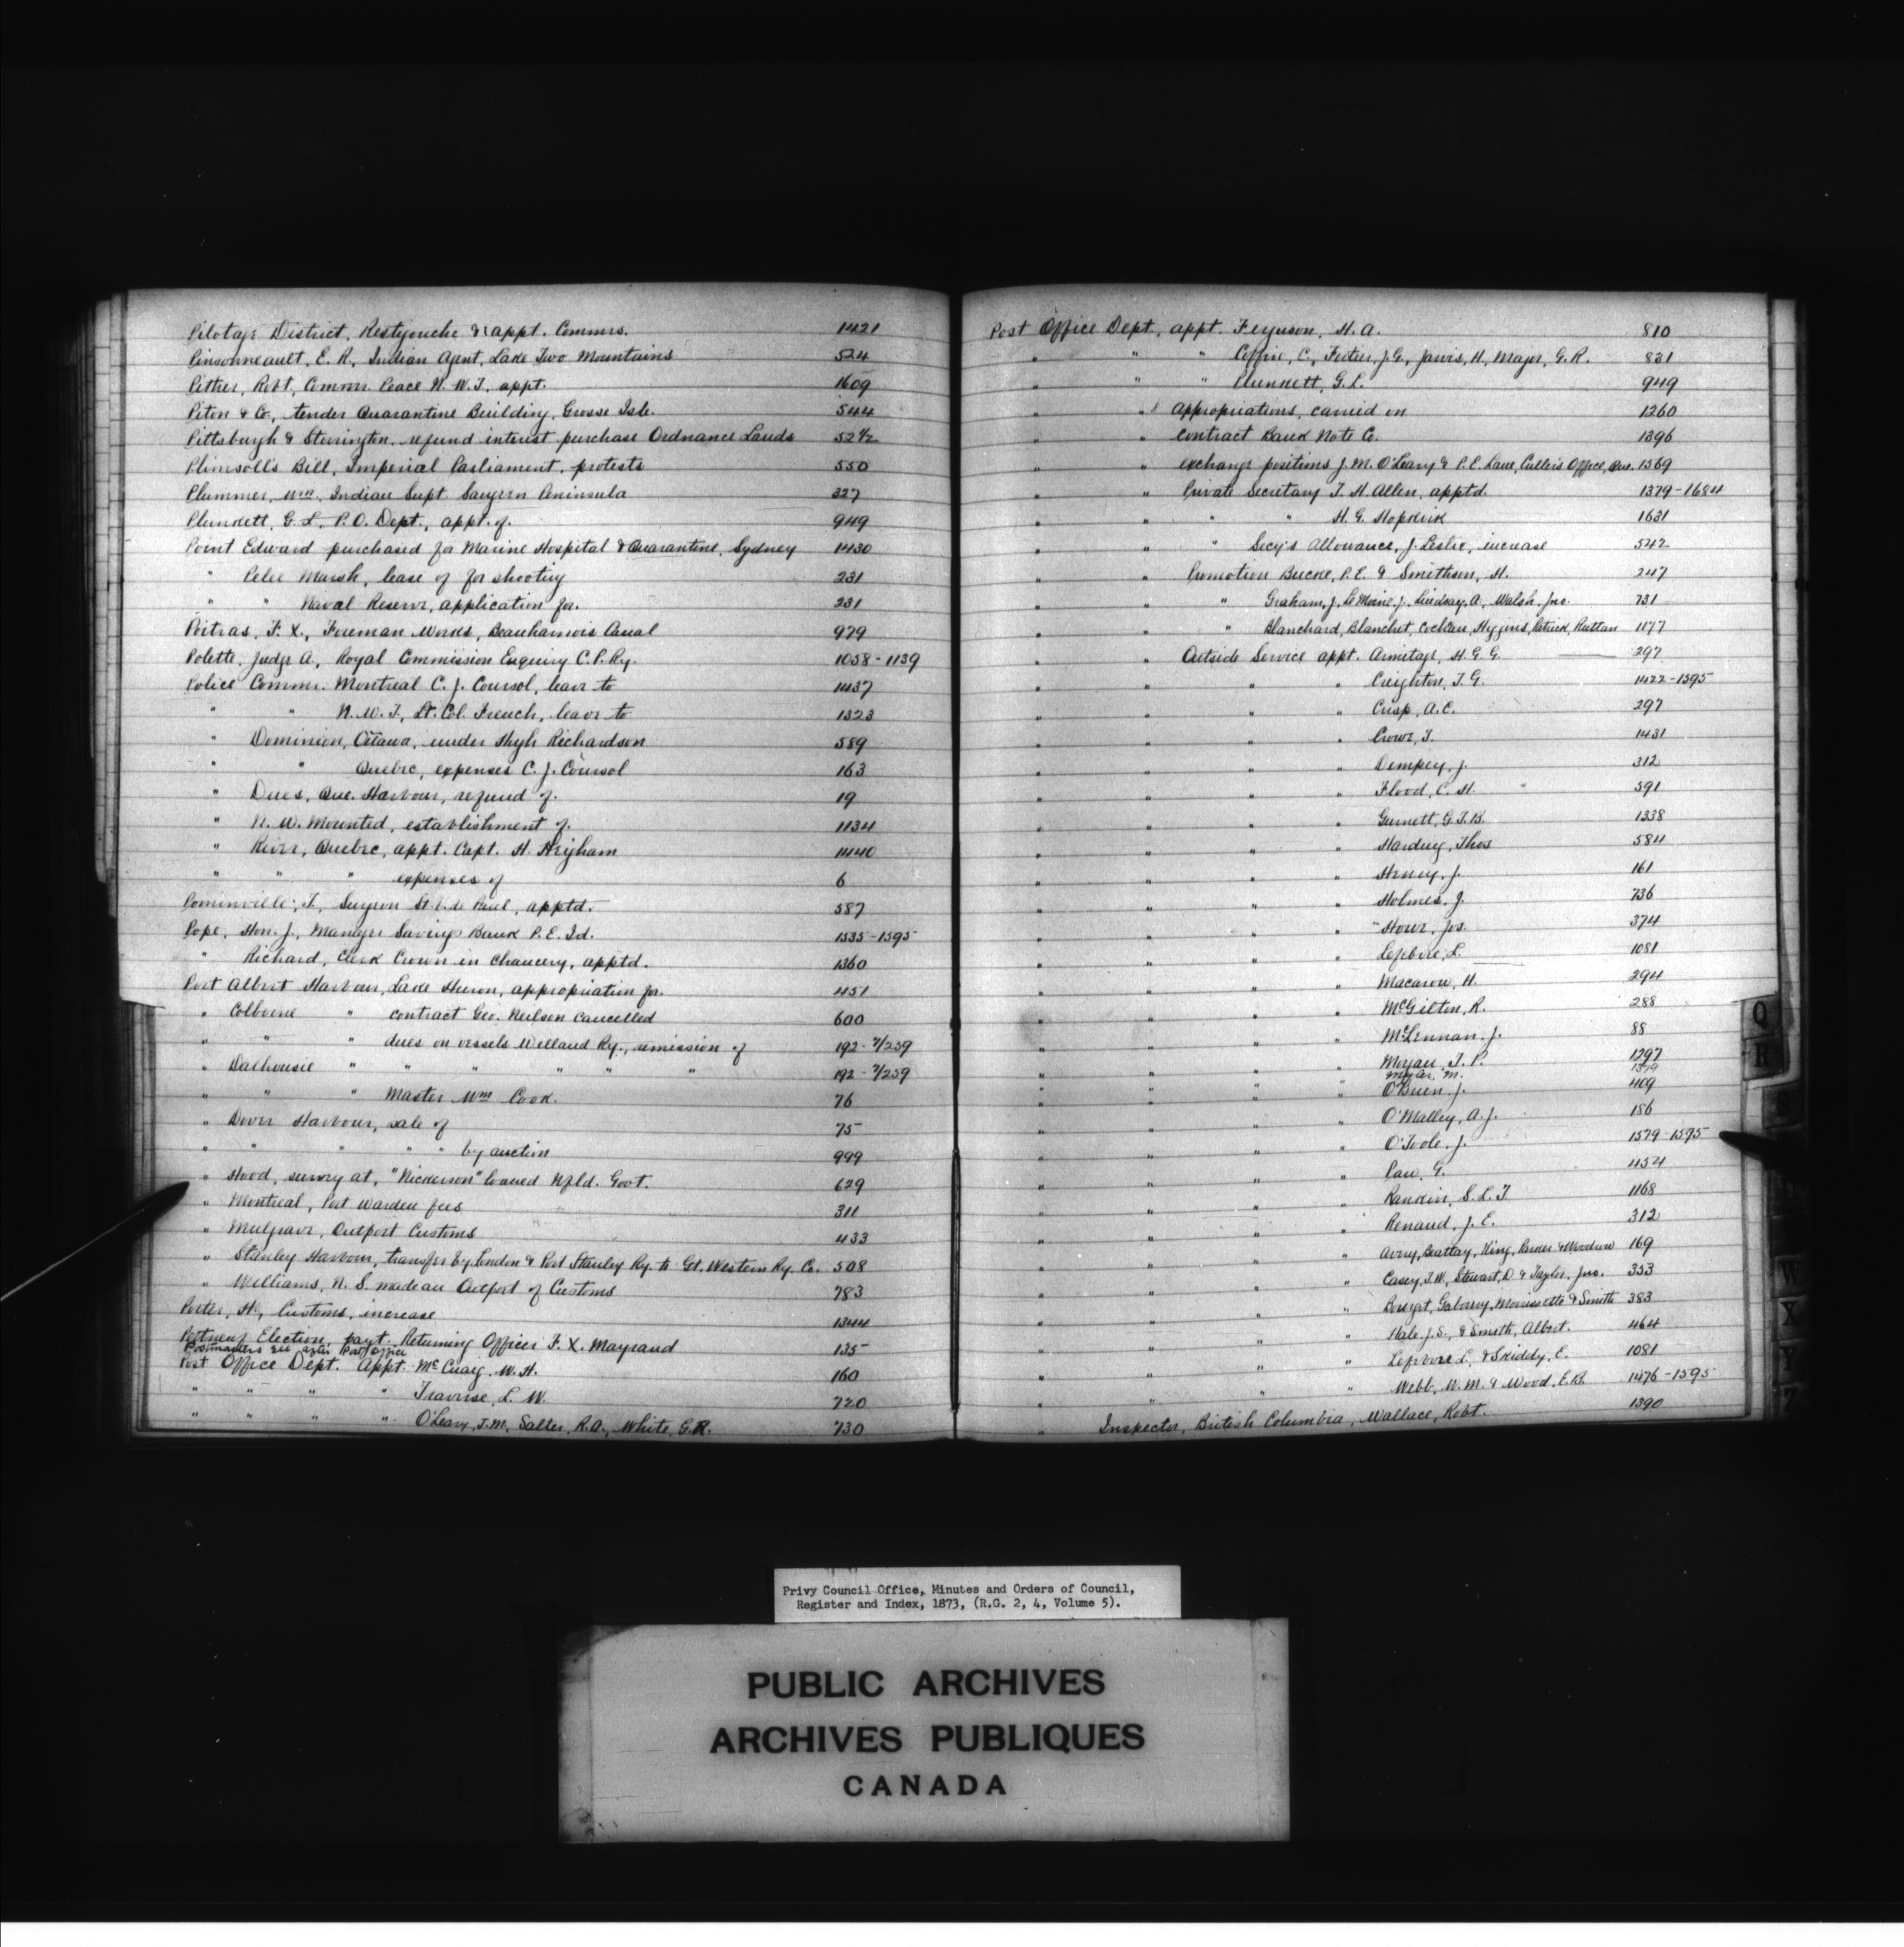 Pilotage District, Restigouche & appt. Commrs. 1421
Pinsonneault, E. R., Indian Agent, Lake Two Mountains 524
Pither, Robt, Commr. Peace N. W. T., appt. 1609
Piton & Co., tender Quarantine Building, Grosse Isle. 544
Pittsburgh & Storrington, refund interest purchase Ordnance Lands 52 1/2
Plimsoll's Bill, Imperial Parliament, protests 550
Plummer, Wm, Indian Supt. Saugeen Peninsula 327
Plunkett, G. L. P.O. Dept., appt. of. 949
Point Edward purchased for Marine Hospital & Quarantine, Sydney 1430
" Pelee Marsh, lease of for shooting 231
" " Naval Reserve, application for. 231
Poitras, F. X., Foreman Works, Beauharnois Canal 979
Polette, Judge A., Royal Commission Enquiry C.P.Ry. 1058-1139
Police Commr. Montreal C. J. Coursol, leave to 1437
" " N. W. T., Lt. Col. French, leave to 1323
" Dominion, Ottawa, under Hugh Richardson 589
" " Quebec, expenses C. J. Coursol 163
" Dues, Que. Harbour, refund of. 19
" N. W. Mounted, establishment of. 1134
" River, Quebec, appt. Capt. H. Heigham 1440
" " " expenses of 6
Pominville, F., Surgeon St. V. de Paul, apptd. 587
Pope, Hon. J., Manager Savings Bank P. E. Id. 1535-1595
" Richard, Clerk Crown in Chancery, apptd. 1360
Port Albert Harbour, Lake Huron, appropriation for. 451
" Colborne " contract Geo. Neilson cancelled 600
" " " dues on vessels Welland Ry., remission of 192-7/259
" Dalhousie " " " " " " 192-7/259
" " " Master Wm Cook. 76
" Dover Harbour, sale of 75
" " " " " by auction 999
" Hood, survey at, "Nickerson" loaned Nfld. Govt. 629
" Montreal, Port Warden fees 311
" Mulgrave, Outport Customs 433
" Stanley Harbour, transfer by London & Port Stanley Ry. to Gt. Western Ry. Co. 508
" Williams, N. S. made an Outport of Customs 783
Porter, H., Customs, increase 1344
Portneuf Election, payt. Returning Officer F. X. Mayrand 135
Postmasters see after Post Office
Post Office Dept. Appt. McCuaig, W. H. 160
" " " " Traverse, L. W. 720
" " " " O'Leary, J.M., Salter, R.A., White, G.R. 730
Post Office Dept., appt. Ferguson, H. A. 810
" " " Coffin, C., Futter, J.G., Jarvis, H, Major, G.R. 831
" " " Plunkett, G.L. 949
" " appropriations, carried on 1260
" " contract Bank Note Co. 1396
" " exchange positions J. M. O'Leary & P.E. Lane, Culler's Office, Que. 1569
" " Private Secretary T. H. Allen, apptd. 1379-1684
" " " " H. G. Hopkirk 1631
" " " Secy's Allowance, J. Leslie, increase 542
" " Promotion Bucke, P.E. & Smithson, H. 247
" " " Graham, J. LeMoine, J. Lindsay, A., Walsh, Jno. 731
" " " Blanchard, Blanchet, Cochlan, Higgins, Patrick, Ruttan 1177
" " Outside Service appt. Armitage, H. G. G. 297
" " " " Creighton, J. G. 1422-1595
" " " " Crisp, A.C. 297
" " " " Crowe, T. 1431
" " " " Dempey, J. 312
" " " " Flood, C. H. 591
" " " " Gurnett, G.T.B. 1338
" " " " Harding, Thos 584
" " " " Henry, J. 161
" " " " Holmes, J. 736
" " " " Howe, Jos. 374
" " " " Lefebvre, L. 1081
" " " " Macarow, H. 294
" " " " McGilton, R. 288
" " " " McLennan, J. 88
" " " " Morgan, J. P. 1297
Myler, M. 1379
" " " " O'Brien, J. 409
" " " " O'Malley, A. J. 186
" " " " O'Toole, J. 1579-1595
" " " " Paw, G. 454
" " " " Rankin, S. L. T 1168
" " " " Renaud, J. E. 312
" " " " Avery, Beattay, King, Parker & Woodrow 169
" " " " Casey, J.W, Stewart, D. & Taylor, Jno. 353
" " " " Bouyet, Gaboury, Morrissette & Smith 383
" " " " Hale, J.S., & Smith, Albert. 464
" " " " Lefebvre L, & Skiddy, E. 1081
" " " " Webb, W. M. & Wood, E.B. 1476-1595
" Inspector, British Columbia, Wallace, Robt. 1390
Q
R
W
X
Y
Z
Privy Council Office, Minutes and Orders of Council,
Register and Index, 1873, (R.G. 2, 4, Volume 5).
PUBLIC ARCHIVES
ARCHIVES PUBLIQUES
CANADA